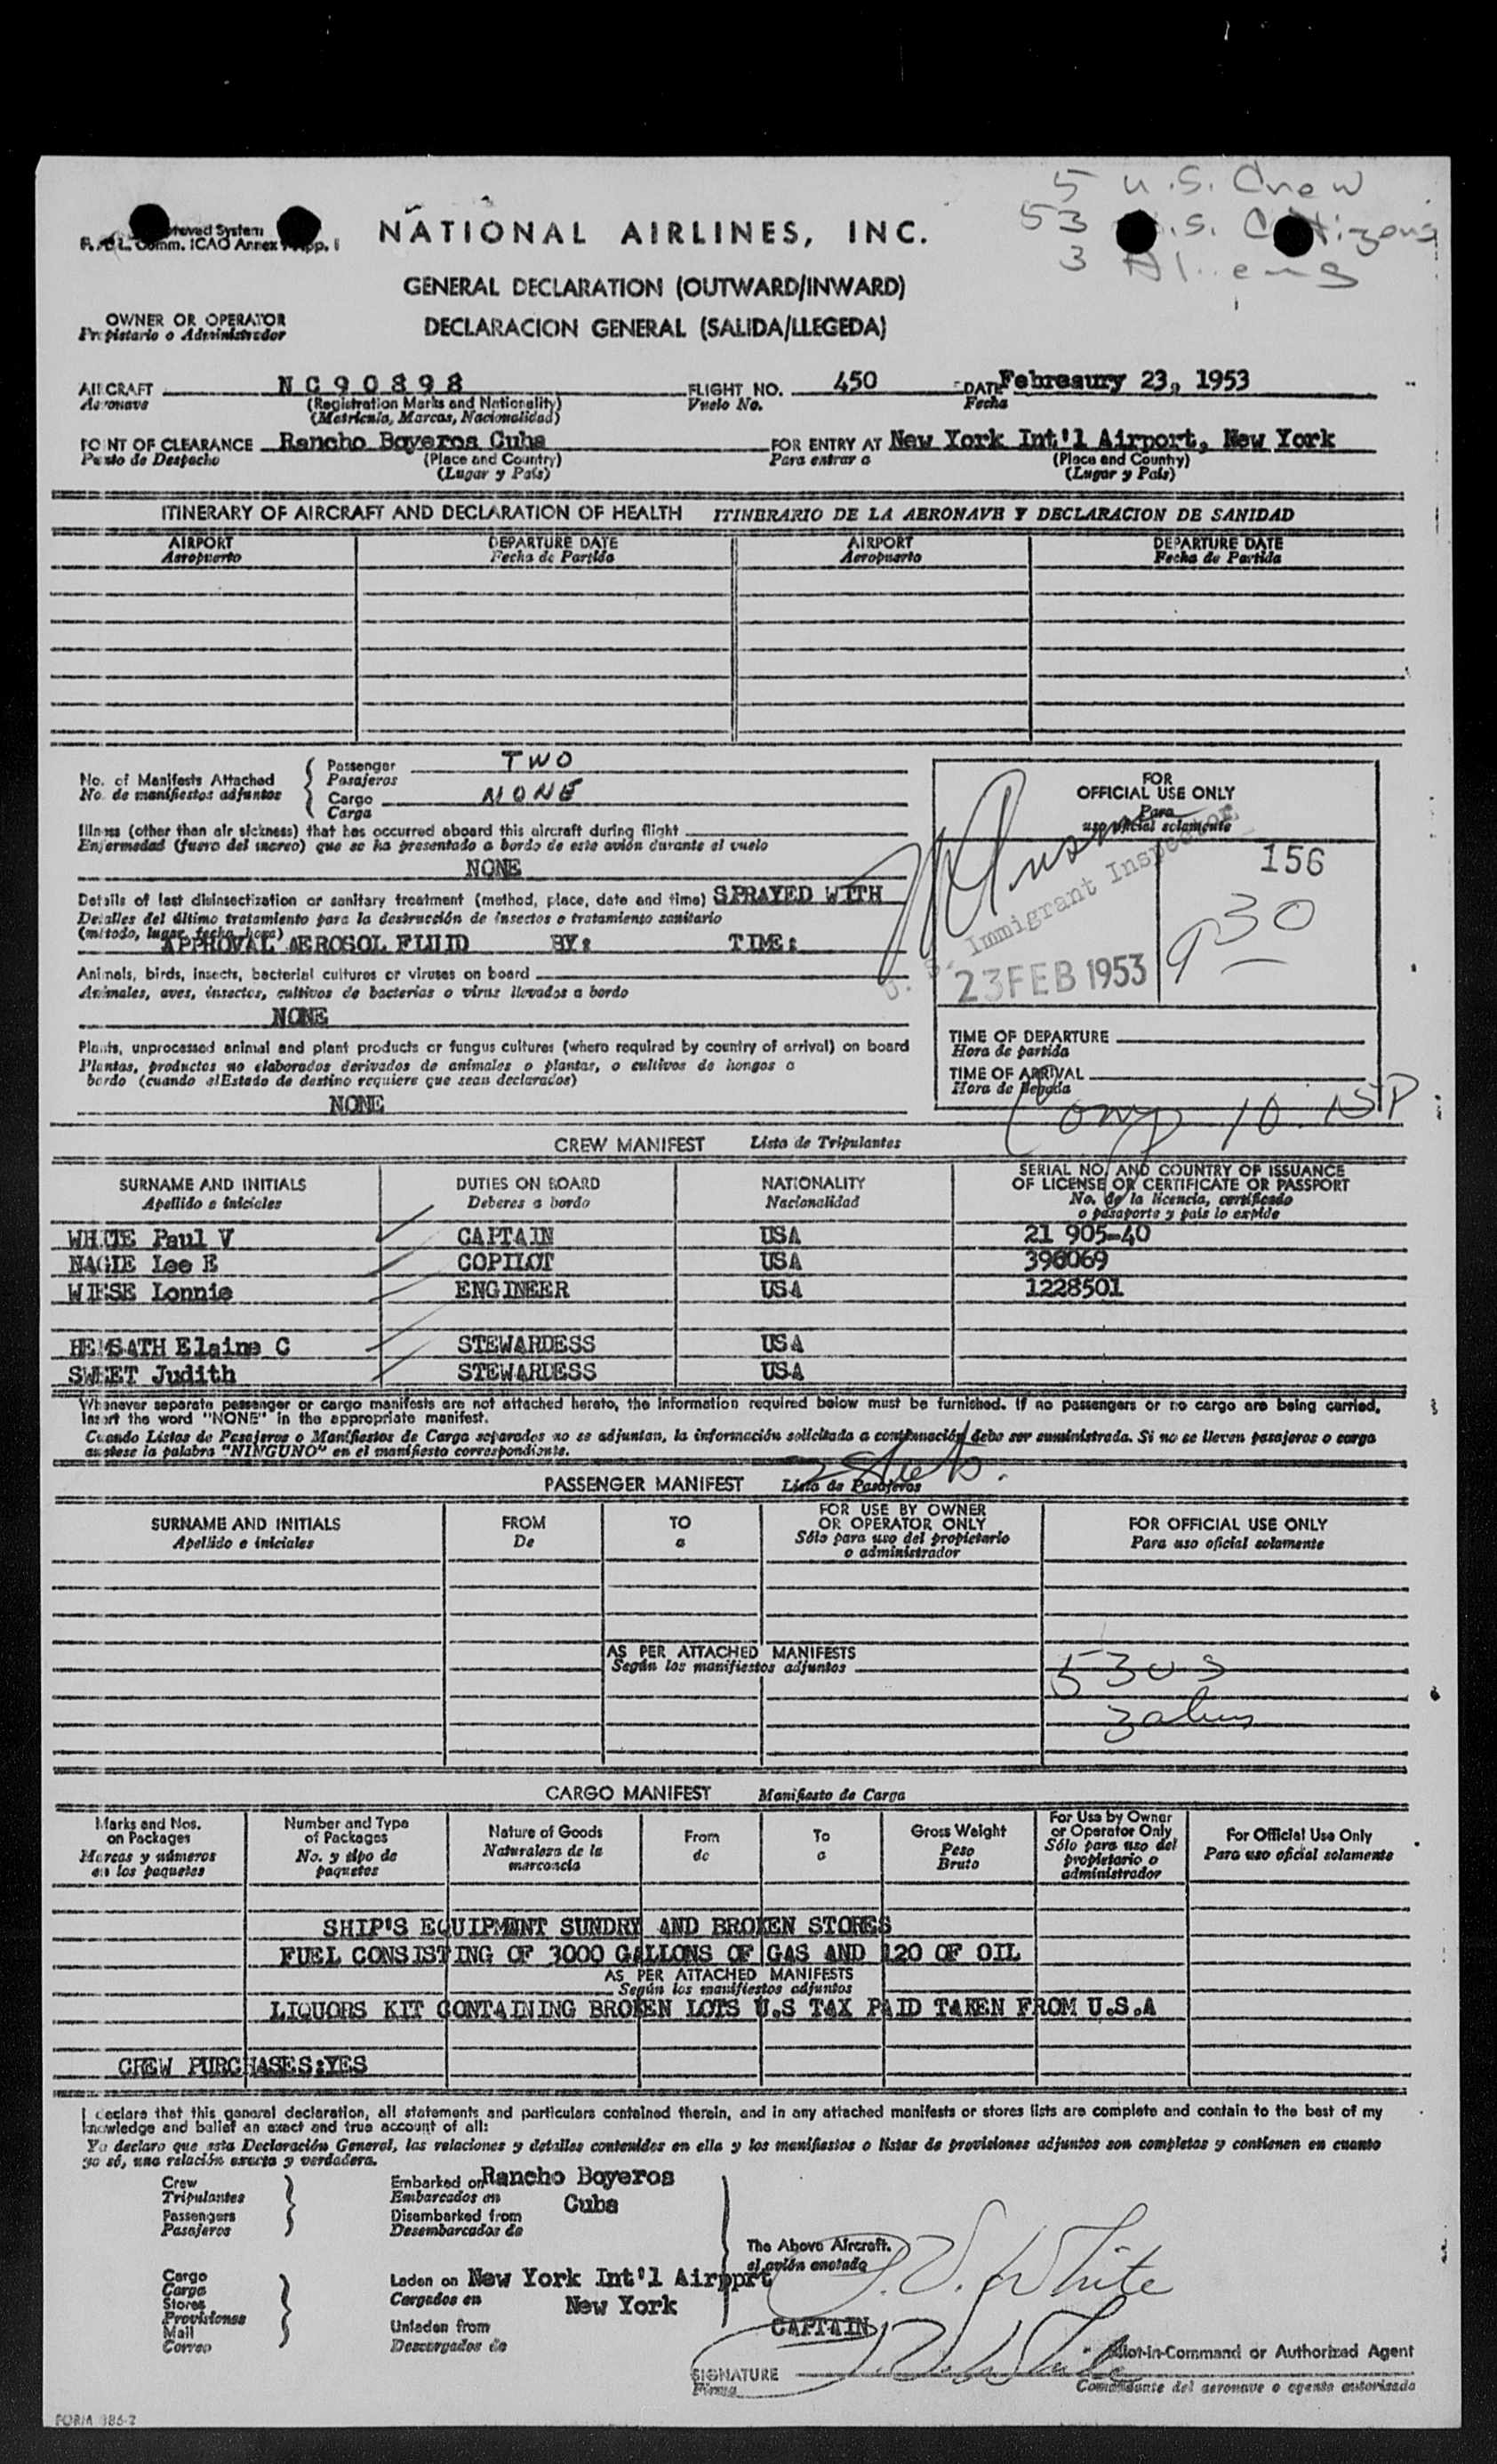 5 U.S. Crew
53 U.S. Citizens
3 Aliens
NATIONAL AIRLINES, INC.
GENERAL DECLARATION (OUTWARD/INWARD)
DECLARACION GENERAL (SALIDA/LLEGEDA)
OWNER OR OPERATOR
Propietario o Administrador
AIRCRAFT NC90898 FLIGHT NO. 450 DATE Febreaury 23, 1953
Aeronave (Registration Marks and Nationality) Vuelo No. Fecha
(Matricula, Marcas, Nacionalidad)
POINT OF CLEARANCE Rancho Boyeros Cuba FOR ENTRY AT New York Int'l Airport, New York
Punto de Despacho (Place and Country) Para entrar a (Place and Country)
(Lugar y País) (Lugar y País)
ITINERARY OF AIRCRAFT AND DECLARATION OF HEALTH ITINERARIO DE LA AERONAVE Y DECLARACION DE SANIDAD
AIRPORT DEPARTURE DATE AIRPORT DEPARTURE DATE
Aeropuerto Fecha de Partida Aeropuerto Fecha de Partida
No. of Manifests Attached Passenger TWO
No. de manifiestos adjuntos Pasajeros
Cargo NONE
Carga
Illness (other than air sickness) that has occurred aboard this aircraft during flight
Enfermedad (fuera del mareo) que se ha presentado a bordo de este avión durante el vuelo
NONE
Details of last disinsectization or sanitary treatment (method, place, date and time) SPRAYED WITH
Detalles del último tratamiento para la destrucción de insectos o tratamiento sanitario
(método, lugar, fecha, hora)
APPROVAL AEROSOL FLUID BY: TIME:
Animals, birds, insects, bacterial cultures or viruses on board
Animales, aves, insectos, cultivos de bacterias o virus llevados a bordo
NONE
Plants, unprocessed animal and plant products or fungus cultures (where required by country of arrival) on board
Plantas, productos no elaborados derivados de animales o plantas, o cultivos de hongos a
bordo (cuando el Estado de destino requiere que sean declarados)
NONE
FOR
OFFICIAL USE ONLY
Para
uso oficial solamente
U. S. Immigrant Inspector
156
930
23 FEB 1953
TIME OF DEPARTURE
Hora de partida
TIME OF ARRIVAL
Hora de llegada
10 15P
CREW MANIFEST Lista de Tripulantes
SURNAME AND INITIALS DUTIES ON BOARD NATIONALITY SERIAL NO. AND COUNTRY OF ISSUANCE
OF LICENSE OR CERTIFICATE OR PASSPORT
Apellido e iniciales Deberes a bordo Nacionalidad No. de la licencia, certificado
o pasaporte y pais lo expide
WHITE Paul V CAPTAIN USA 21 905-40
NAGIE Lee E COPILOT USA 396069
WIESE Lonnie ENGINEER USA 1228501
HEMSATH Elaine C STEWARDESS USA
SWEET Judith STEWARDESS USA
Whenever separate passenger or cargo manifests are not attached hereto, the information required below must be furnished. If no passengers or no cargo are being carried,
insert the word "NONE" in the appropriate manifest.
Cuando Listas de Pasajeros o Manifiestos de Carga separados no se adjuntan, la información solicitada a continuación debe ser suministrada. Si no se lleven pasajeros o carga
anótese la palabra "NINGUNO" en el manifiesto correspondiente.
PASSENGER MANIFEST Lista de Pasajeros
SURNAME AND INITIALS FROM TO FOR USE BY OWNER
OR OPERATOR ONLY FOR OFFICIAL USE ONLY
Apellido e iniciales De a Sólo para uso del propietario
o administrador Para uso oficial solamente
AS PER ATTACHED MANIFESTS
Según los manifiestos adjuntos
53 US
3 aliens
CARGO MANIFEST Manifiesto de Carga
Marks and Nos.
on Packages
Marcas y números
en los paquetes
Number and Type
of Packages
No. y tipo de
paquetes
Nature of Goods
Naturaleza de la
mercancía
From
de
To
a
Gross Weight
Peso
Bruto
For Use by Owner
or Operator Only
Sólo para uso del
propietario o
administrador
For Official Use Only
Para uso oficial solamente
SHIP'S EQUIPMENT SUNDRY AND BROKEN STORES
FUEL CONSISTING OF 3000 GALLONS OF GAS AND 120 OF OIL
AS PER ATTACHED MANIFESTS
Según los manifiestos adjuntos
LIQUORS KIT CONTAINING BROKEN LOTS U.S TAX PAID TAKEN FROM U.S.A
CREW PURCHASES:YES
I declare that this general declaration, all statements and particulars contained therein, and in any attached manifests or stores lists are complete and contain to the best of my
knowledge and belief an exact and true account of all:
Yo declaro que esta Declaración General, las relaciones y detalles contenidos en ella y los manifiestos o listas de provisiones adjuntos son completos y contienen en cuanto
yo sé, una relación exacta y verdadera.
Crew
Tripulantes
Passengers
Pasajeros
Embarked on Rancho Boyeros
Embarcados en Cuba
Disembarked from
Desembarcados de
The Above Aircraft.
el avión anotado
Cargo
Carga
Stores
Provisiones
Mail
Correo
Laden on New York Int'l Airpprt
Cargados en New York
Unladen from
Descargados de
P. V. White
CAPTAIN
SIGNATURE P. V. White Pilot-in-Command or Authorized Agent
Firma Comandante del aeronave o agente autorizado
FORM 386-2